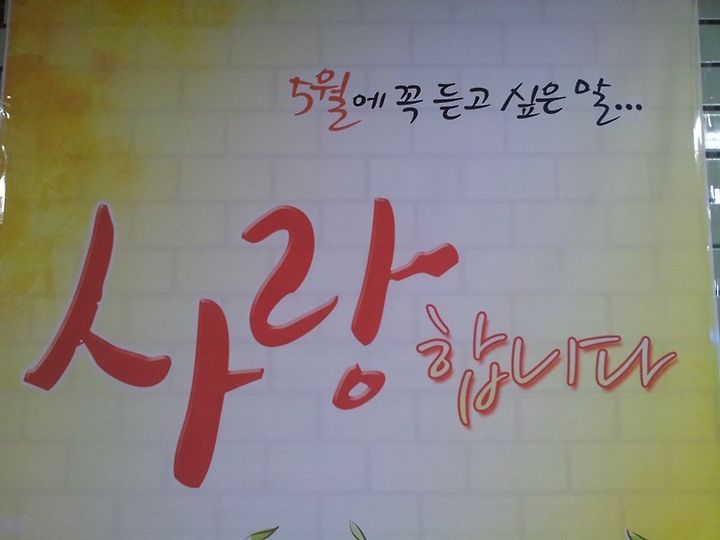 5월에 꼭 듣고 싶은 말...
사랑합니다